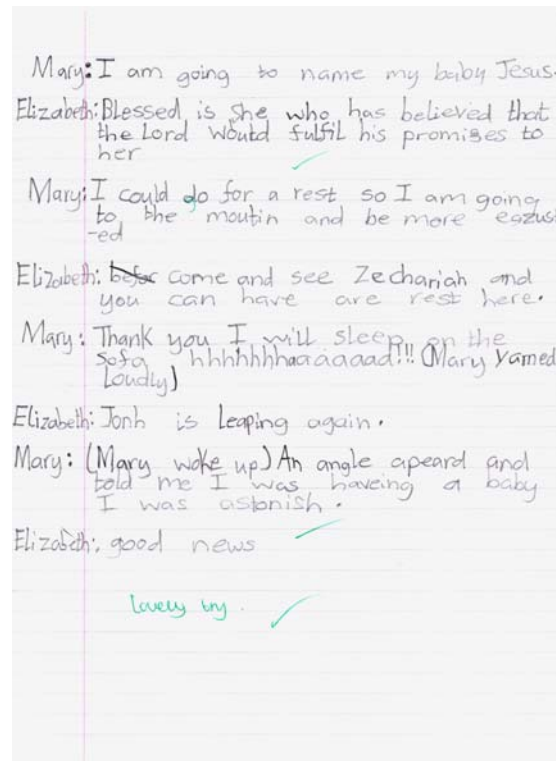 Mary: I am going to name my baby Jesus.
Elizabeth: Blessed is she who has believed that
the Lord would fulfil his promises to
her
Mary: I could do for a rest so I am going
to the moutin and be more egzust
-ed
Elizabeth: come and see Zechariah and
you can have are rest here.
Mary: Thank you I will sleep on the
sofa hhhhhhhaaaaaaad!!! (Mary yarned
Loudly)
Elizabeth: Jonh is leaping again.
Mary: (Mary woke up) An angle apeard and
told me I was haveing a baby
I was astonish.
Elizabeth: good news
Lovely try.